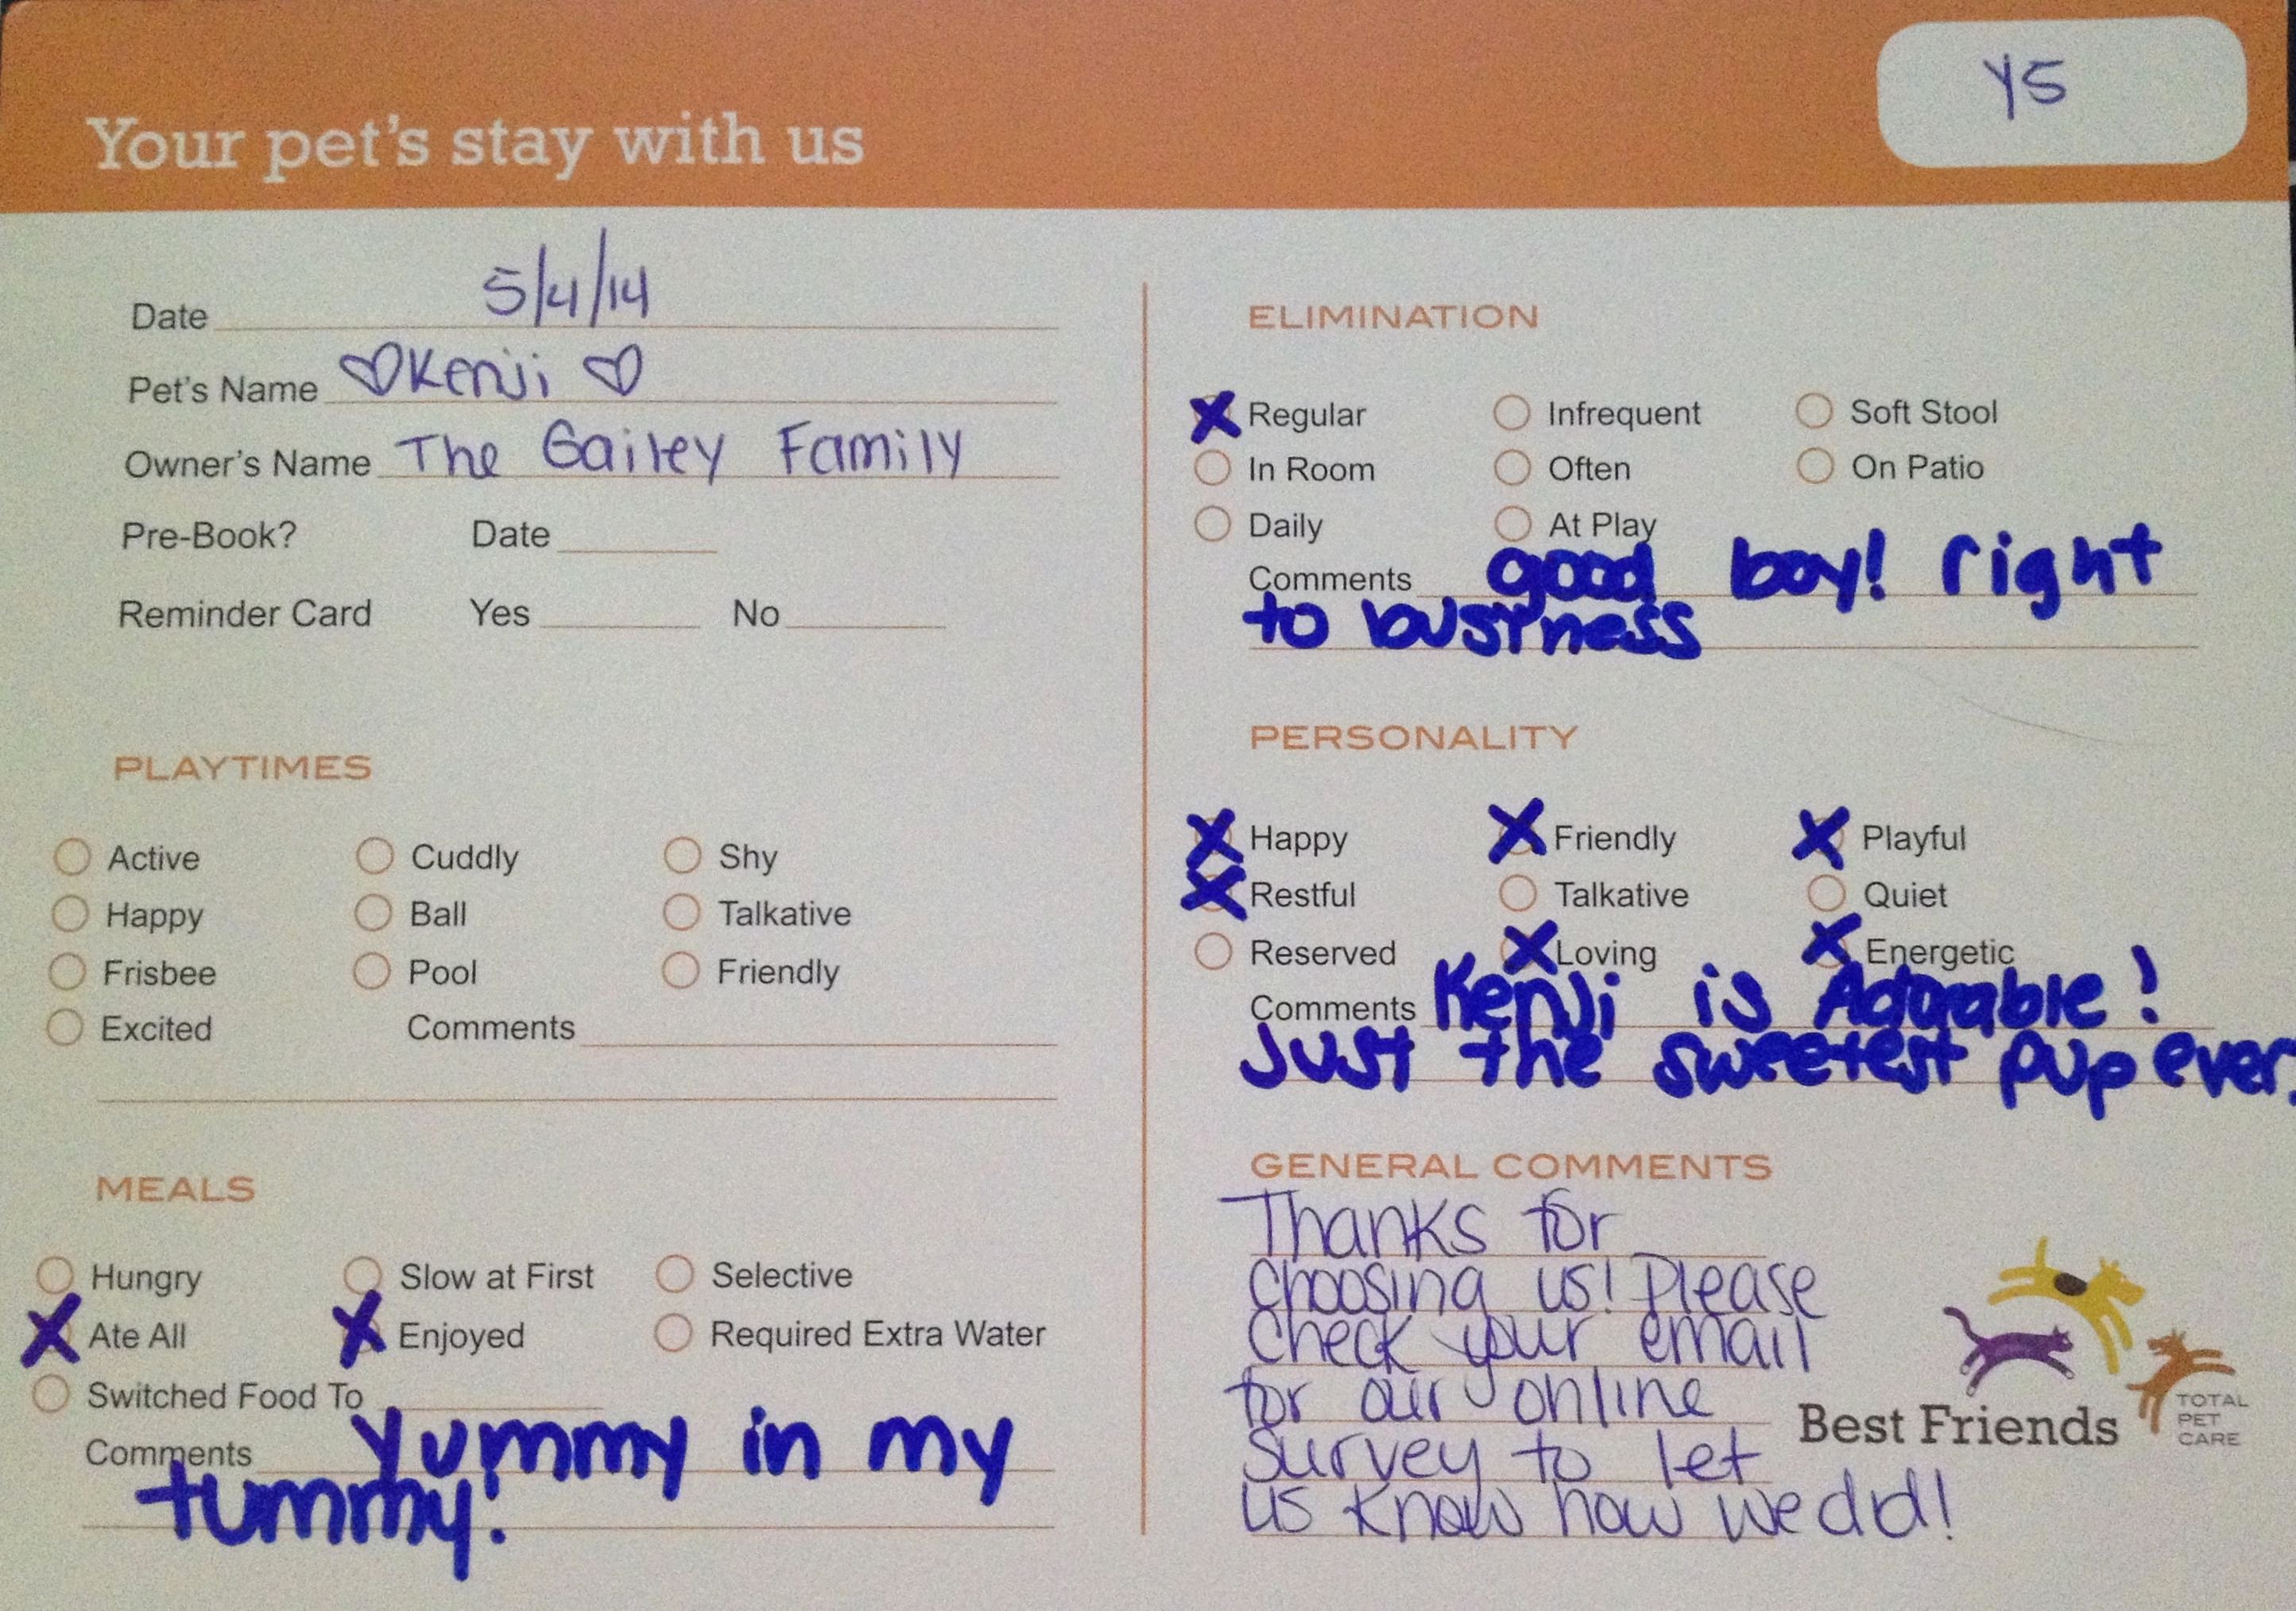 Y5
Your pet's stay with us
Date 5/4/14
Pet's Name ♡Kenji♡
Owner's Name The Gailey Family
Pre-Book? Date
Reminder Card Yes No
PLAYTIMES
Active Cuddly Shy
Happy Ball Talkative
Frisbee Pool Friendly
Excited Comments
MEALS
Hungry Slow at First Selective
X Ate All X Enjoyed Required Extra Water
Switched Food To
Comments Yummy in my
tummy!
ELIMINATION
X Regular Infrequent Soft Stool
In Room Often On Patio
Daily At Play
Comments good boy! right
to business
PERSONALITY
X Happy X Friendly X Playful
X Restful Talkative Quiet
Reserved X Loving X Energetic
Comments Kenji is Adorable!
Just the sweetest pup ever.
GENERAL COMMENTS
Thanks for
choosing us! Please
check your email
for our online
survey to let
us know how we did!
Best Friends
TOTAL
PET
CARE